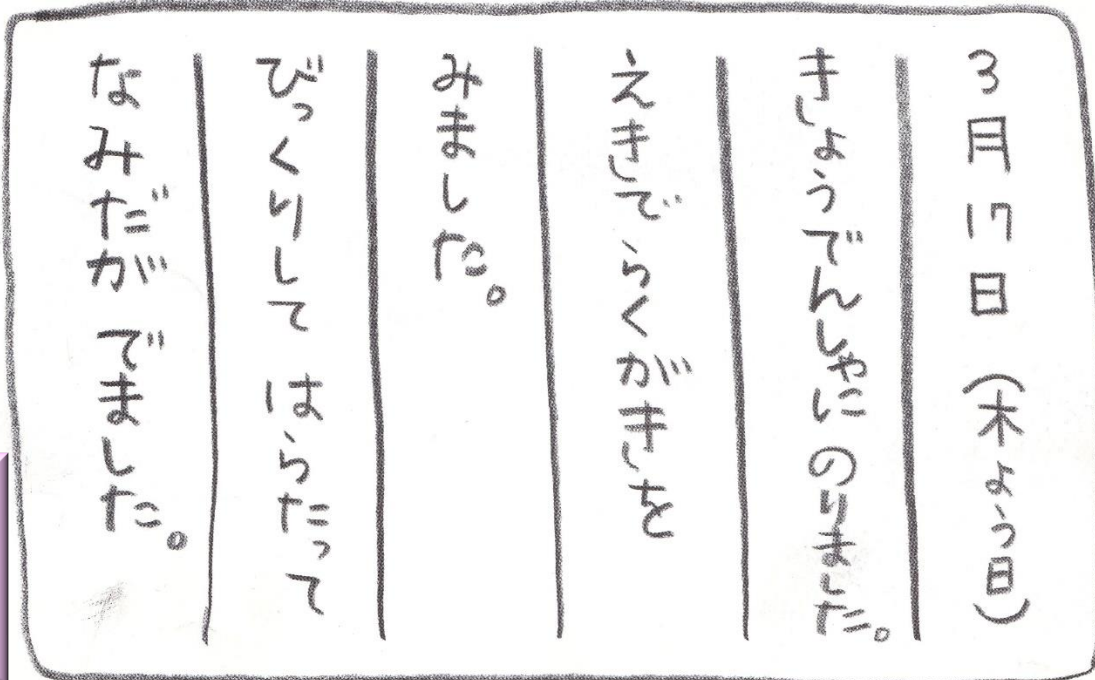 3月17日（木よう日）
きょうでんしゃに のりました。
えきで らくがきを
みました。
びっくりして はらたって
なみだが でました。